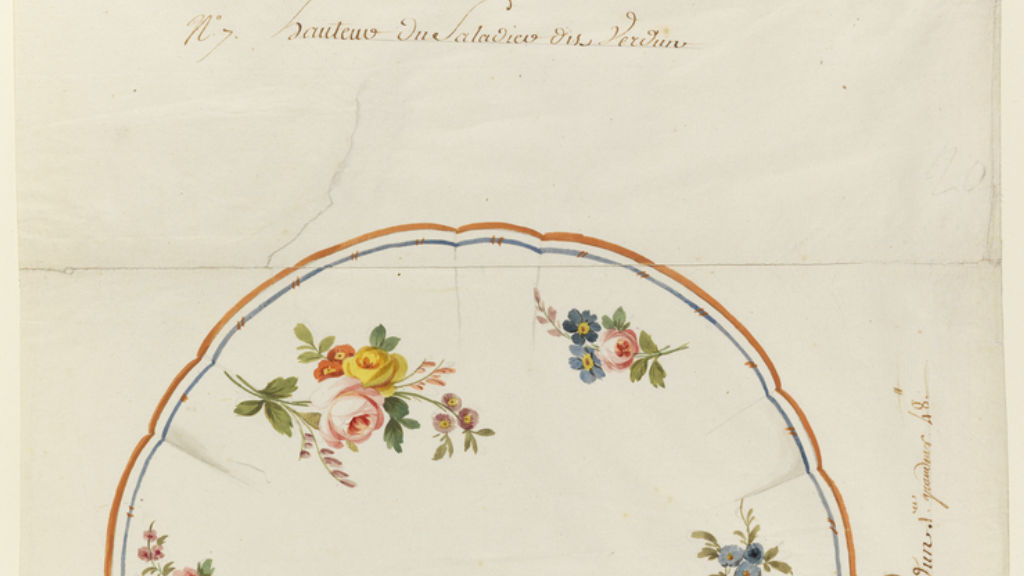 N° 7. hauteur du Saladier dit Verdun
dun 1ere grandeur 48